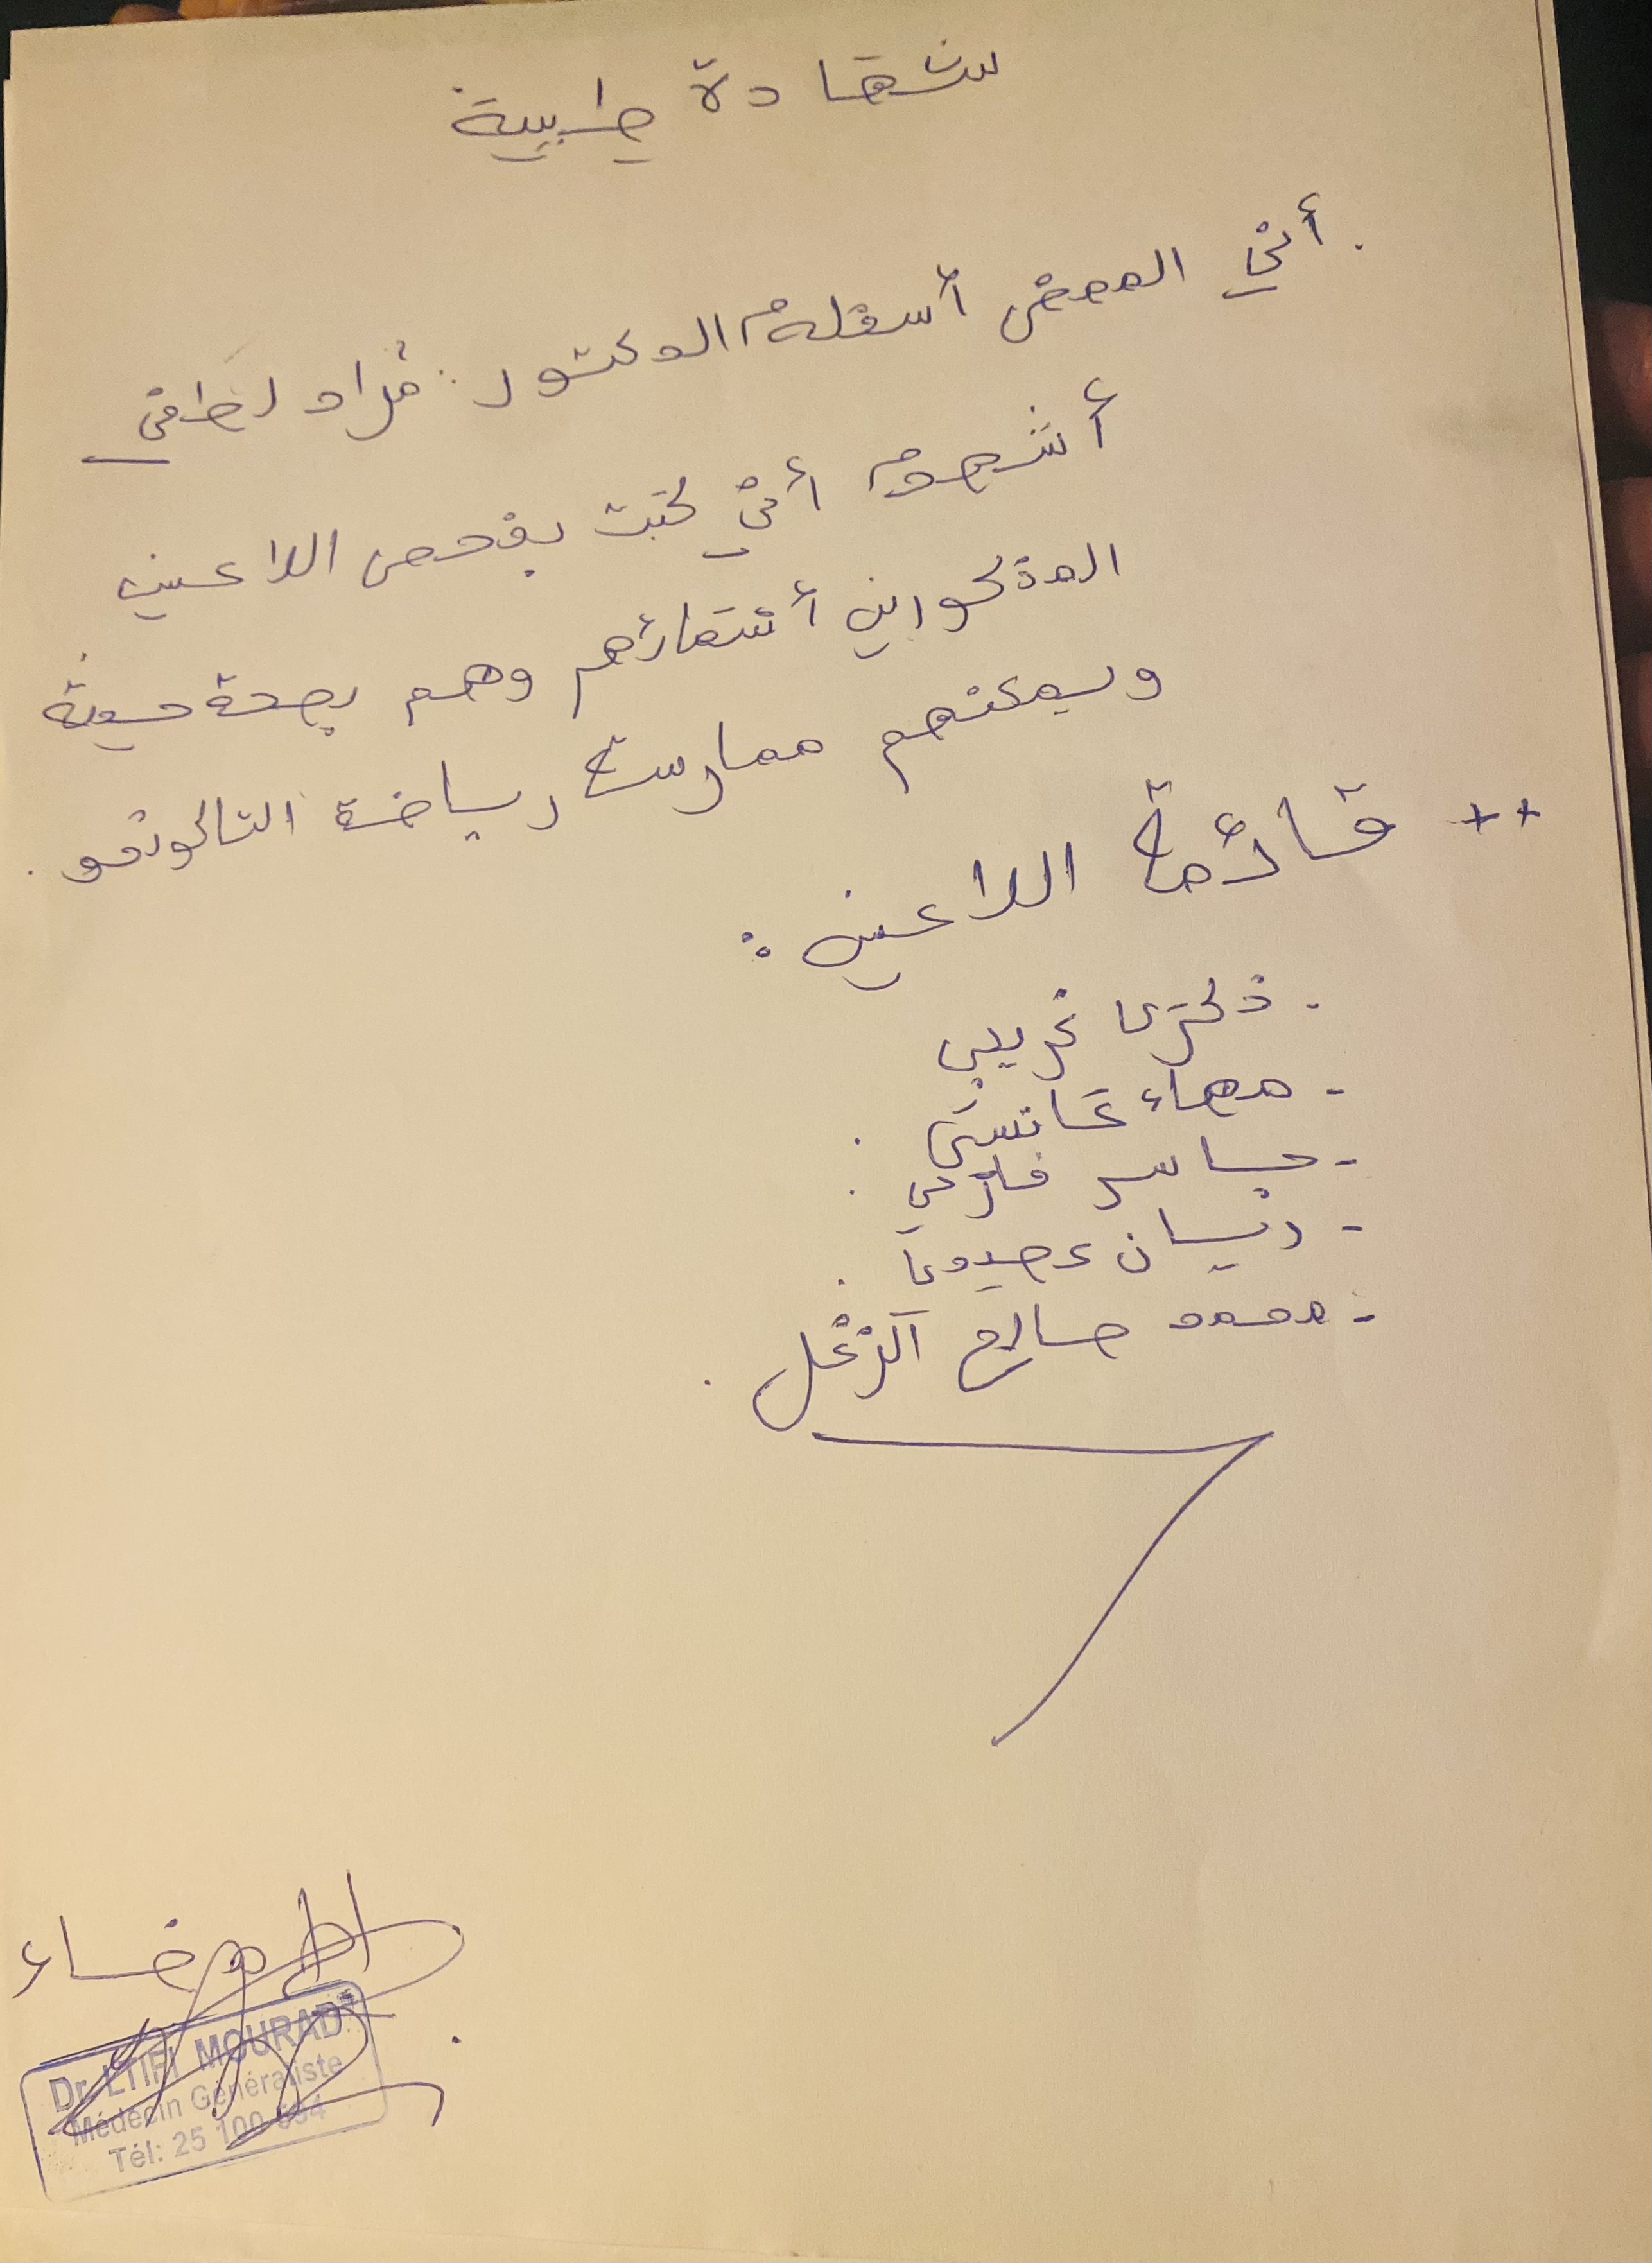 شهادة طبية
. أني الممضي أسفله الدكتور : مراد لطفي
أشهد أني قمت بفحص اللاعبين
المذكورين أسمائهم وهم بصحة جيدة
ويمكنهم ممارسة رياضة التايكوندو .
++ قائمة اللاعبين :
- ذكرى غريبي
- مهاء
- جاسر
- ريان
- محمد صالح الزغل .
الإمضاء
Dr. LTIFI MOURAD
Médecin Généraliste
Tél: 25 100